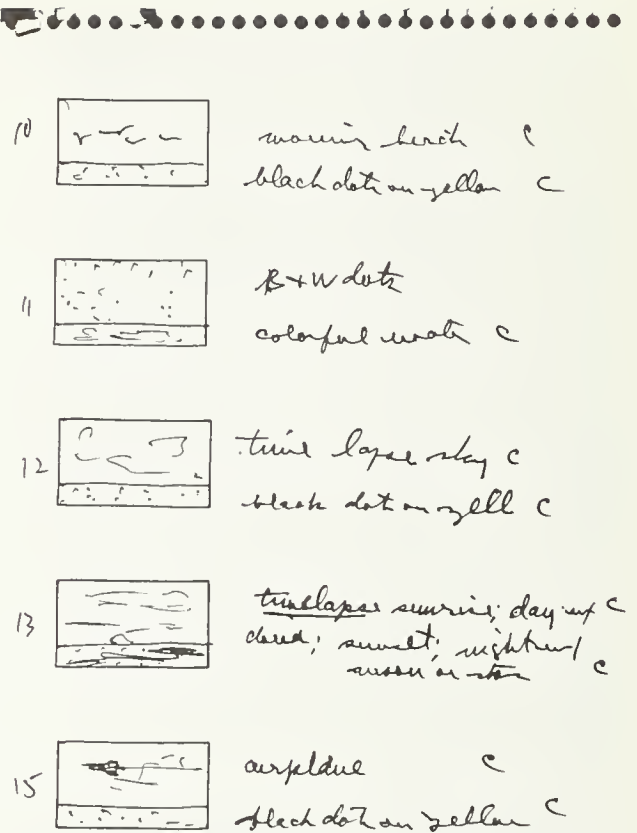 10 moving birds C
black dots on yellow C
11 B+W dots
colorful water C
12 time lapse sky C
black dots on yell C
13 timelapse sunrise; day w/ C
cloud; sunset; night w/
moon or stars C
15 airplane C
black dots on yellow C